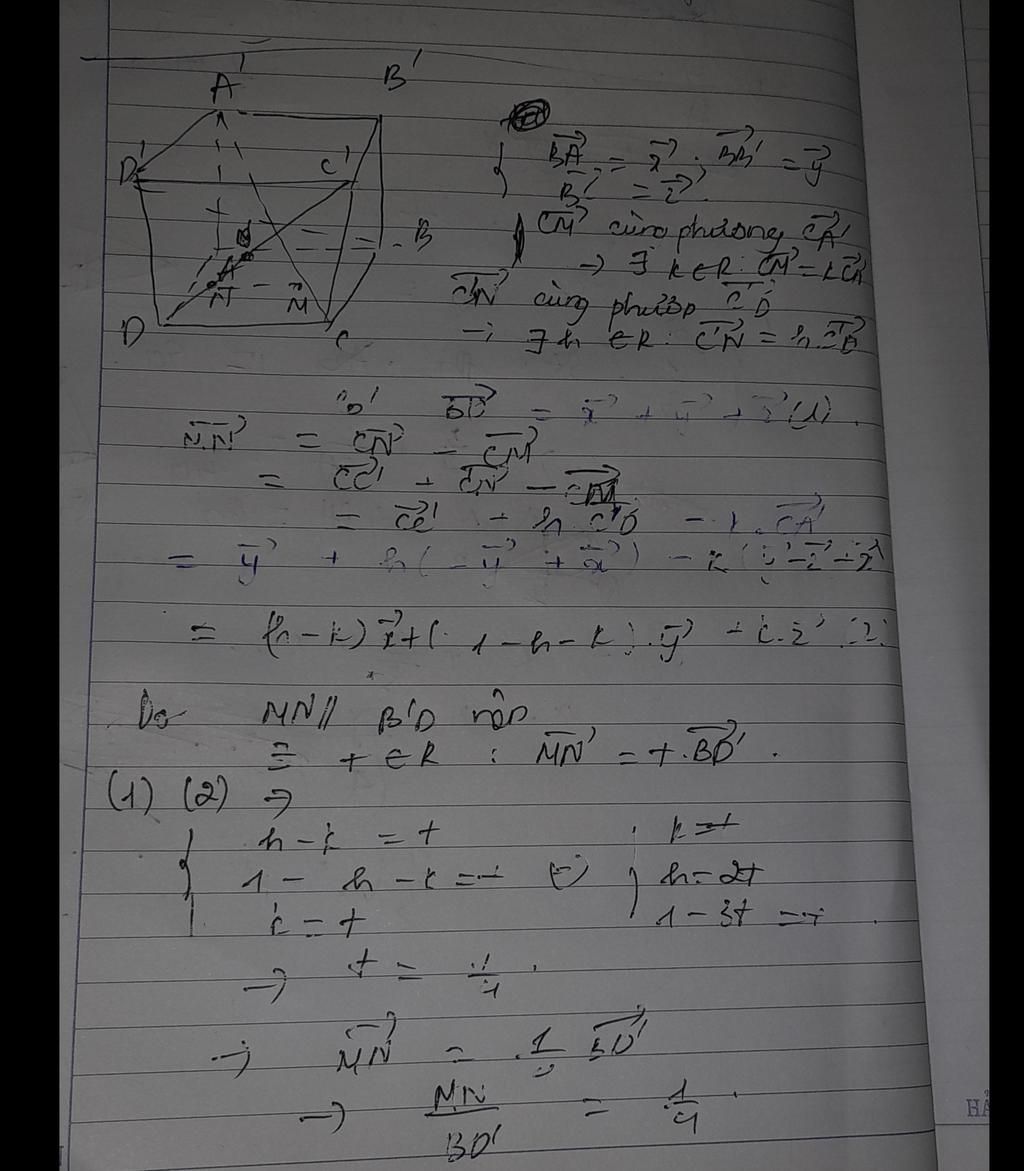 A' B'
D' C'
B
N
A
N M
D C
BA = x ; BB' = y
B' = z
CM cùng phương CA'
→ ∃ k ∈ R : CM = k CA'
C'N cùng phương C'D
→ ∃ h ∈ R : C'N = h . C'D
BD' = x + y + z (1) .
MN = CN - CM
= CC' + C'N - CM
= CC' + h . C'D - k . CA'
= y + h ( - y + x ) - k ( y - z + x )
= (h - k) x + ( 1 - h - k ) . y + k . z (2)
Do MN // B'D nên
∃ t ∈ R : MN = t . BD' .
(1) (2) →
h - k = t ; k = t
1 - h - k = t ⇔ h = 2t
k = t 1 - 3t = t .
→ t = 1/4 .
→ MN = 1/4 BD'
→ MN/BD' = 1/4 .
HÀ